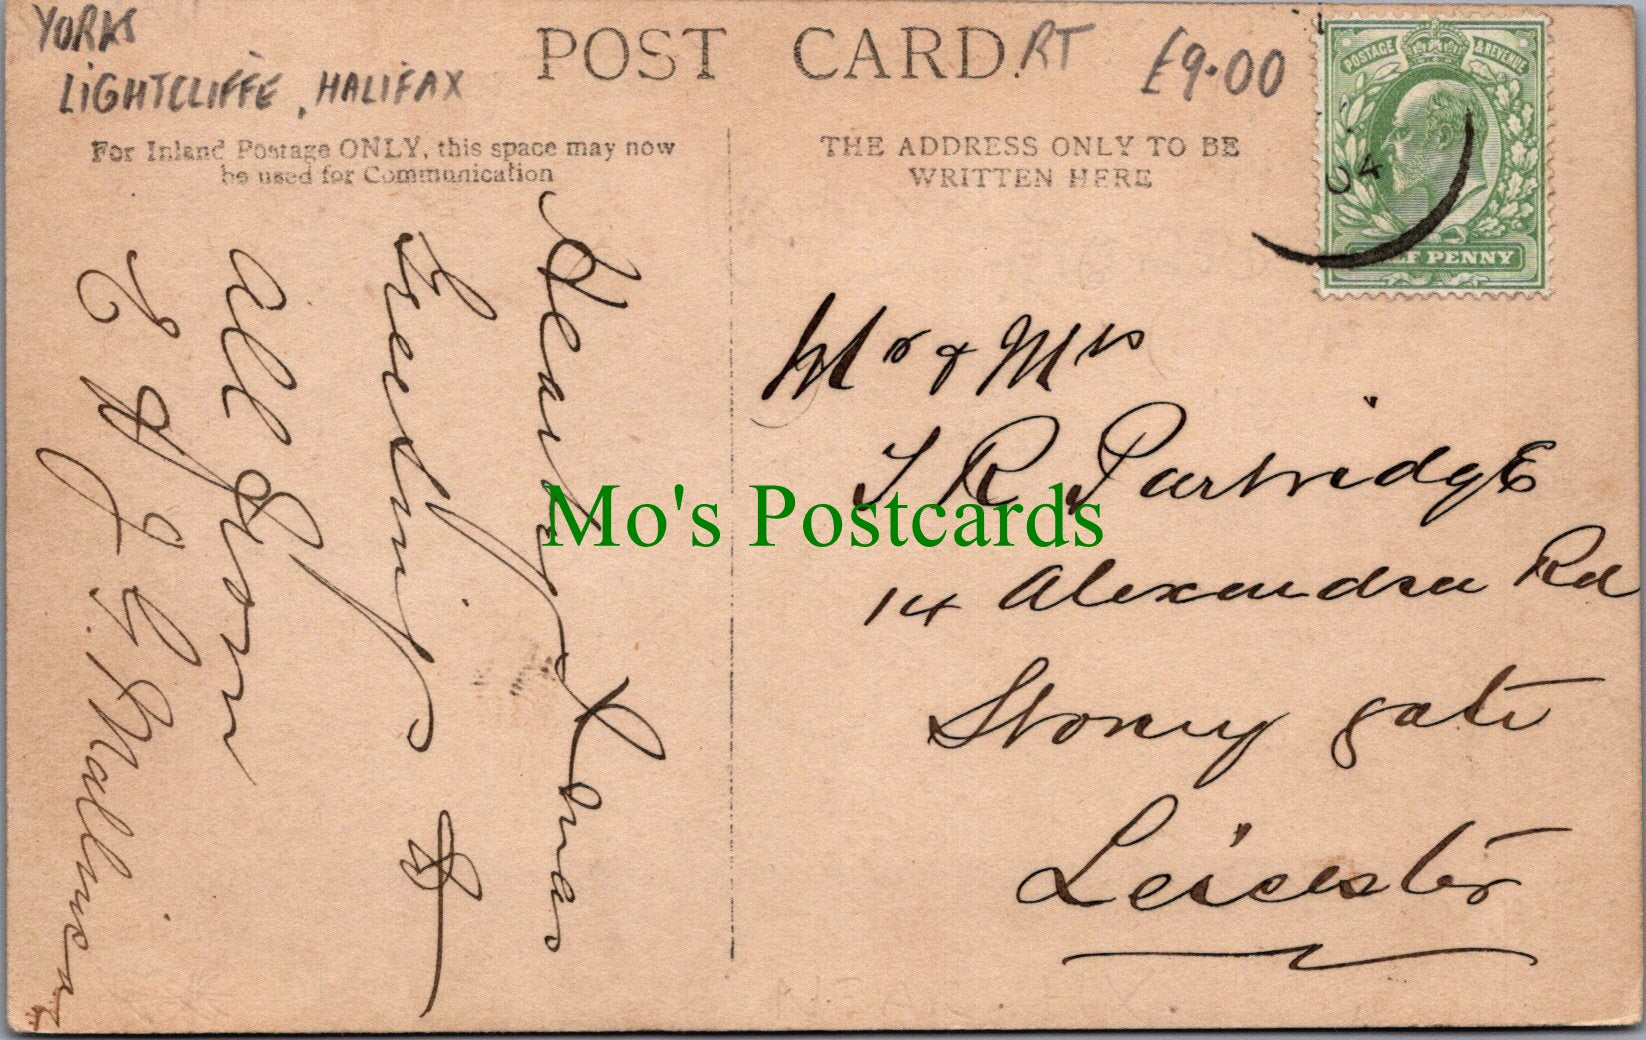 YORKS
LIGHTCLIFFE, HALIFAX
POST CARD.
RT
£9.00
For Inland Postage ONLY, this space may now
be used for Communication
THE ADDRESS ONLY TO BE
WRITTEN HERE
POSTAGE & REVENUE
04
LF PENNY
Hearty Xmas
Greetings to
all from
E H & J. G. Mallinson
Mr & Mrs
J R Partridge
14 Alexandra Rd
Stoney gate
Leicester
Mo's Postcards